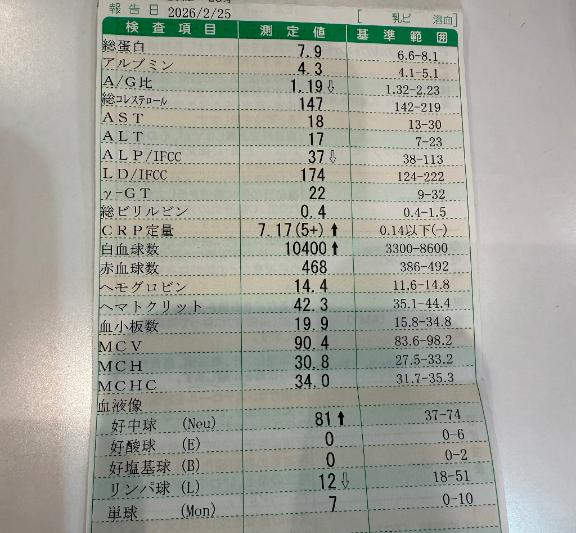 報告日 2026/2/25 [ 乳ビ 溶血]
検査項目 測定値 基準範囲
総蛋白 7.9 6.6-8.1
アルブミン 4.3 4.1-5.1
A/G比 1.19⇩ 1.32-2.23
総コレステロール 147 142-219
AST 18 13-30
ALT 17 7-23
ALP/IFCC 37⇩ 38-113
LD/IFCC 174 124-222
γ-GT 22 9-32
総ビリルビン 0.4 0.4-1.5
CRP定量 7.17(5+)⬆ 0.14以下(-)
白血球数 10400⬆ 3300-8600
赤血球数 468 386-492
ヘモグロビン 14.4 11.6-14.8
ヘマトクリット 42.3 35.1-44.4
血小板数 19.9 15.8-34.8
MCV 90.4 83.6-98.2
MCH 30.8 27.5-33.2
MCHC 34.0 31.7-35.3
血液像
好中球 (Neu) 81⬆ 37-74
好酸球 (E) 0 0-6
好塩基球 (B) 0 0-2
リンパ球 (L) 12⇩ 18-51
単球 (Mon) 7 0-10